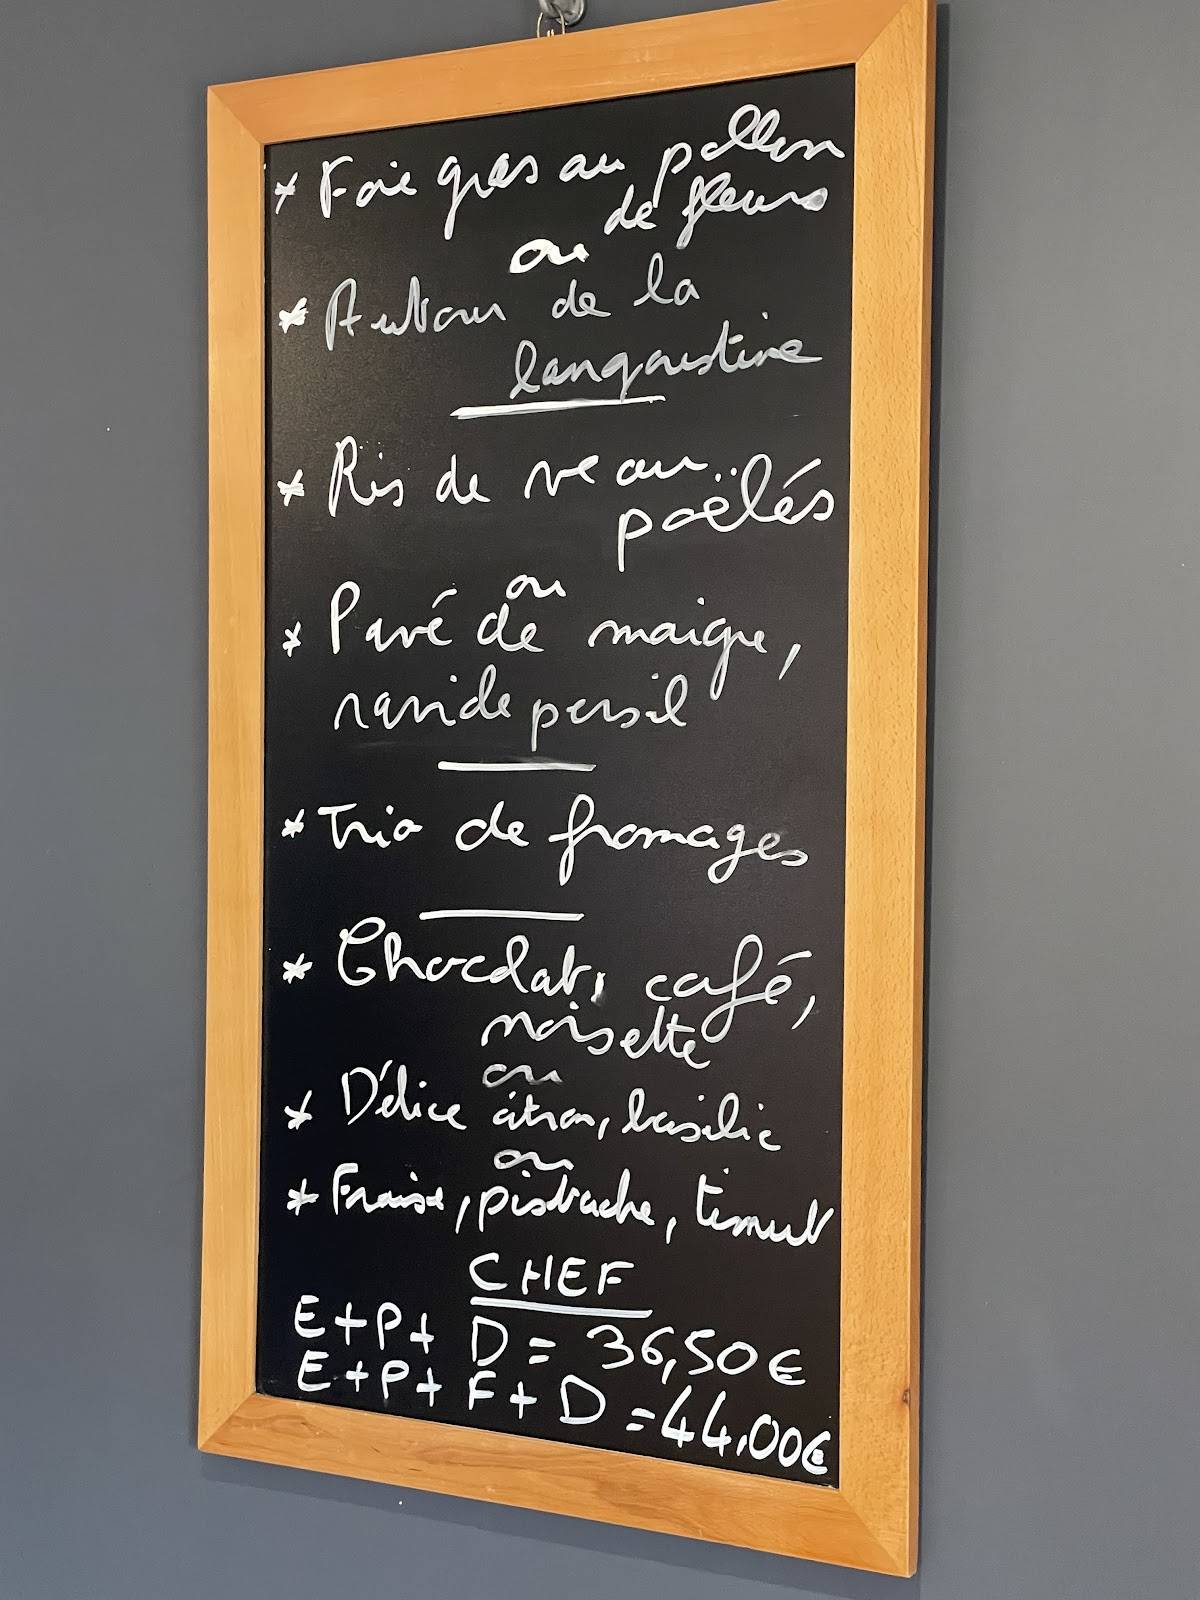 * Foie gras au pollen
de fleurs
ou
* Autour de la
langoustine
* Ris de veau
poëlés
ou
* Pavé de maigre,
ravide persil
* Trio de fromages
* Chocolat, café,
noisette
ou
* Délice citron, basilic
ou
* Fraise, pistache, timut
CHEF
E+P+ D = 36,50€
E+P+ F+D =44,00€